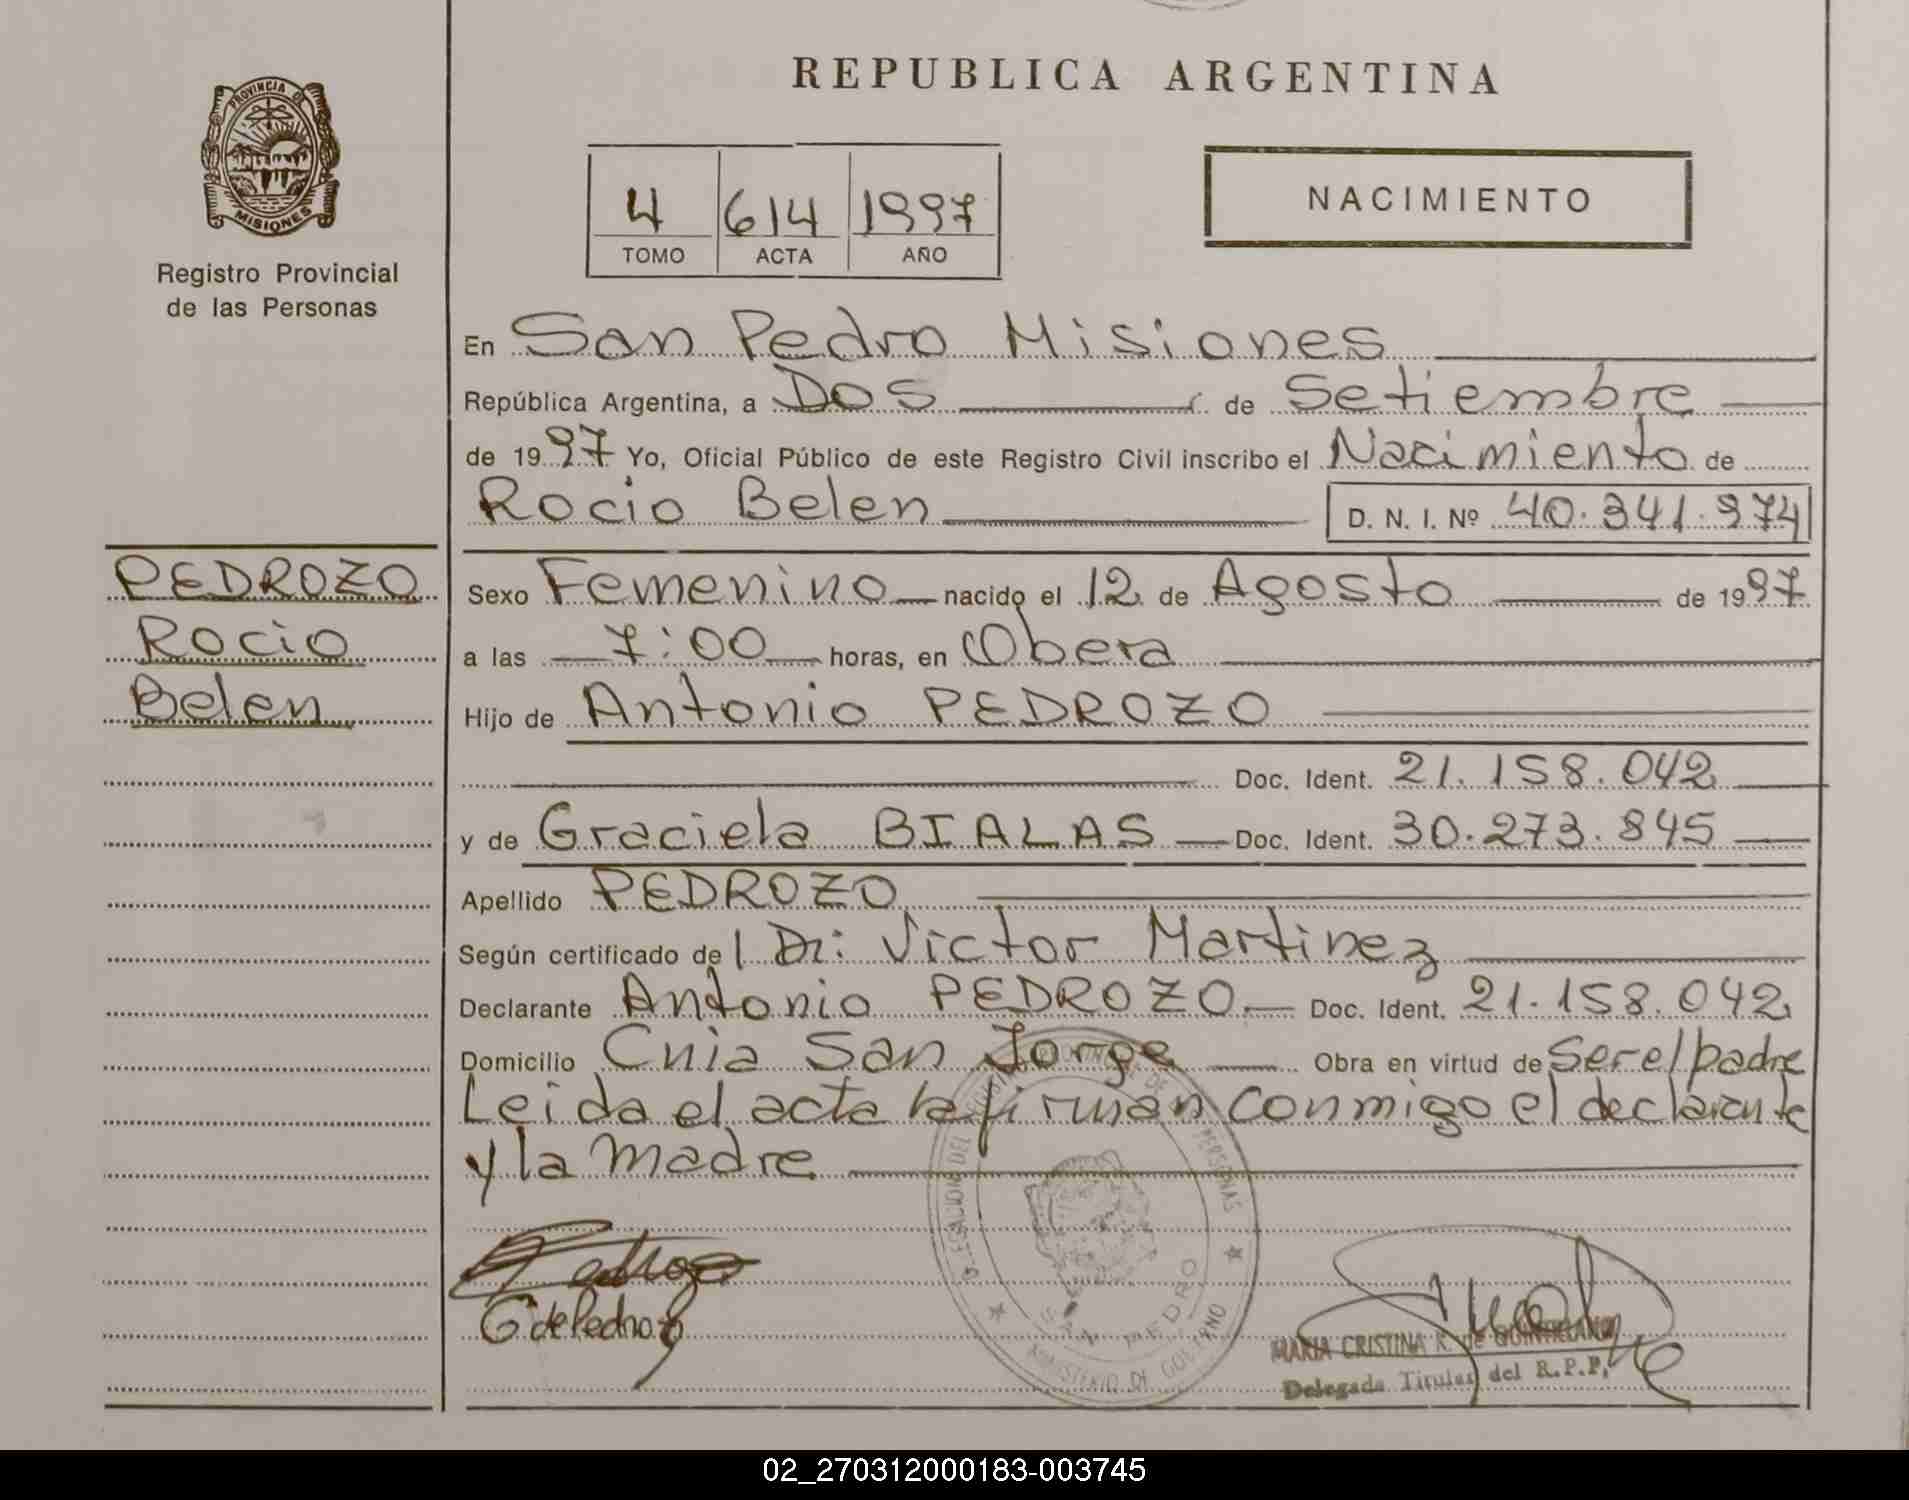 REPUBLICA ARGENTINA
PROVINCIA DE
MISIONES
Registro Provincial
de las Personas
4 614 1997
TOMO ACTA AÑO
NACIMIENTO
En San Pedro Misiones
República Argentina, a Dos de Setiembre
de 1997 Yo, Oficial Público de este Registro Civil inscribo el Nacimiento de
Rocio Belen D. N. I. Nº 40.341.974
PEDROZO
Rocio
Belen
Sexo Femenino nacido el 12 de Agosto de 1997
a las 7:00 horas, en Obera
Hijo de Antonio PEDROZO
Doc. Ident. 21.158.042
y de Graciela BIALAS Doc. Ident. 30.273.845
Apellido PEDROZO
Según certificado de l Dr: Victor Martinez
Declarante Antonio PEDROZO Doc. Ident. 21.158.042
Domicilio Cnia San Jorge Obra en virtud de Ser el padre
Leida el acta la firman conmigo el declarante
y la madre
Pedrozo
G de Pedrozo
SAN PEDRO
MINISTERIO DE GOBIERNO
MARIA CRISTINA R. de
Delegada Titular del R.P.P.
02_270312000183-003745